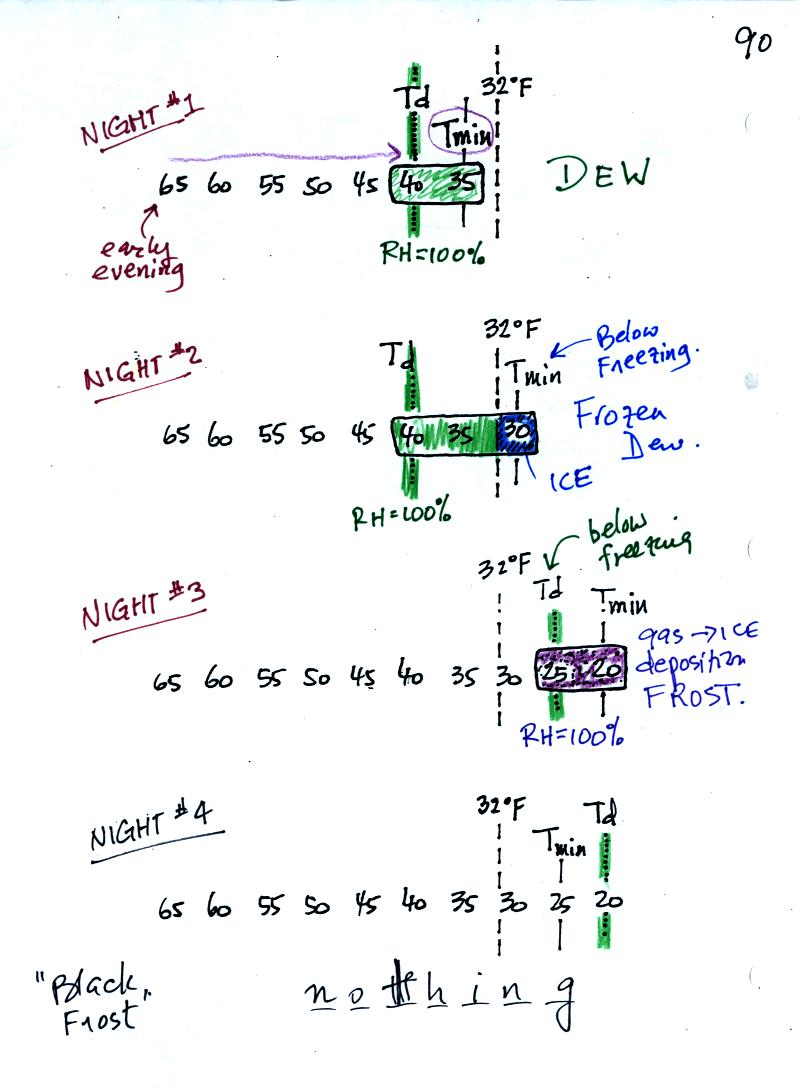 90
NIGHT #1
Td
32°F
Tmin
65 60 55 50 45 40 35
DEW
early
evening
RH=100%
NIGHT #2
Td
32°F
Tmin
Below
Freezing.
65 60 55 50 45 40 35 30
Frozen
Dew.
ICE
RH=100%
NIGHT #3
32°F
Td
below
freezing
Tmin
65 60 55 50 45 40 35 30 25 20
gas → ICE
deposition
FROST.
RH=100%
NIGHT #4
32°F
Td
Tmin
65 60 55 50 45 40 35 30 25 20
"Black
Frost"
nothing